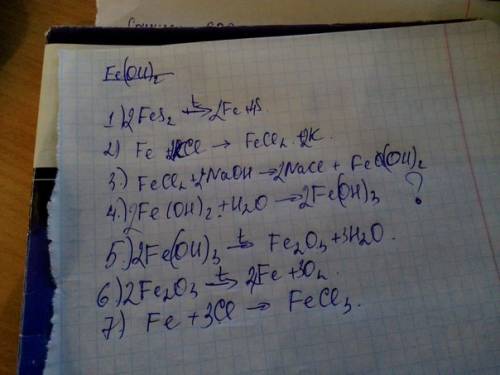 Fe(OH)₂
1) 2FeS₂ →t 2Fe + S
2) Fe + 2KCl → FeCl₂ + 2K.
3) FeCl₂ + 2NaOH → 2NaCl + Fe(OH)₂
4.) 2Fe(OH)₂ + H₂O → 2Fe(OH)₃ ?
5) 2Fe(OH)₃ →t Fe₂O₃ + 3H₂O.
6) 2Fe₂O₃ →t 2Fe + 3O₂.
7) Fe + 3Cl → FeCl₃.